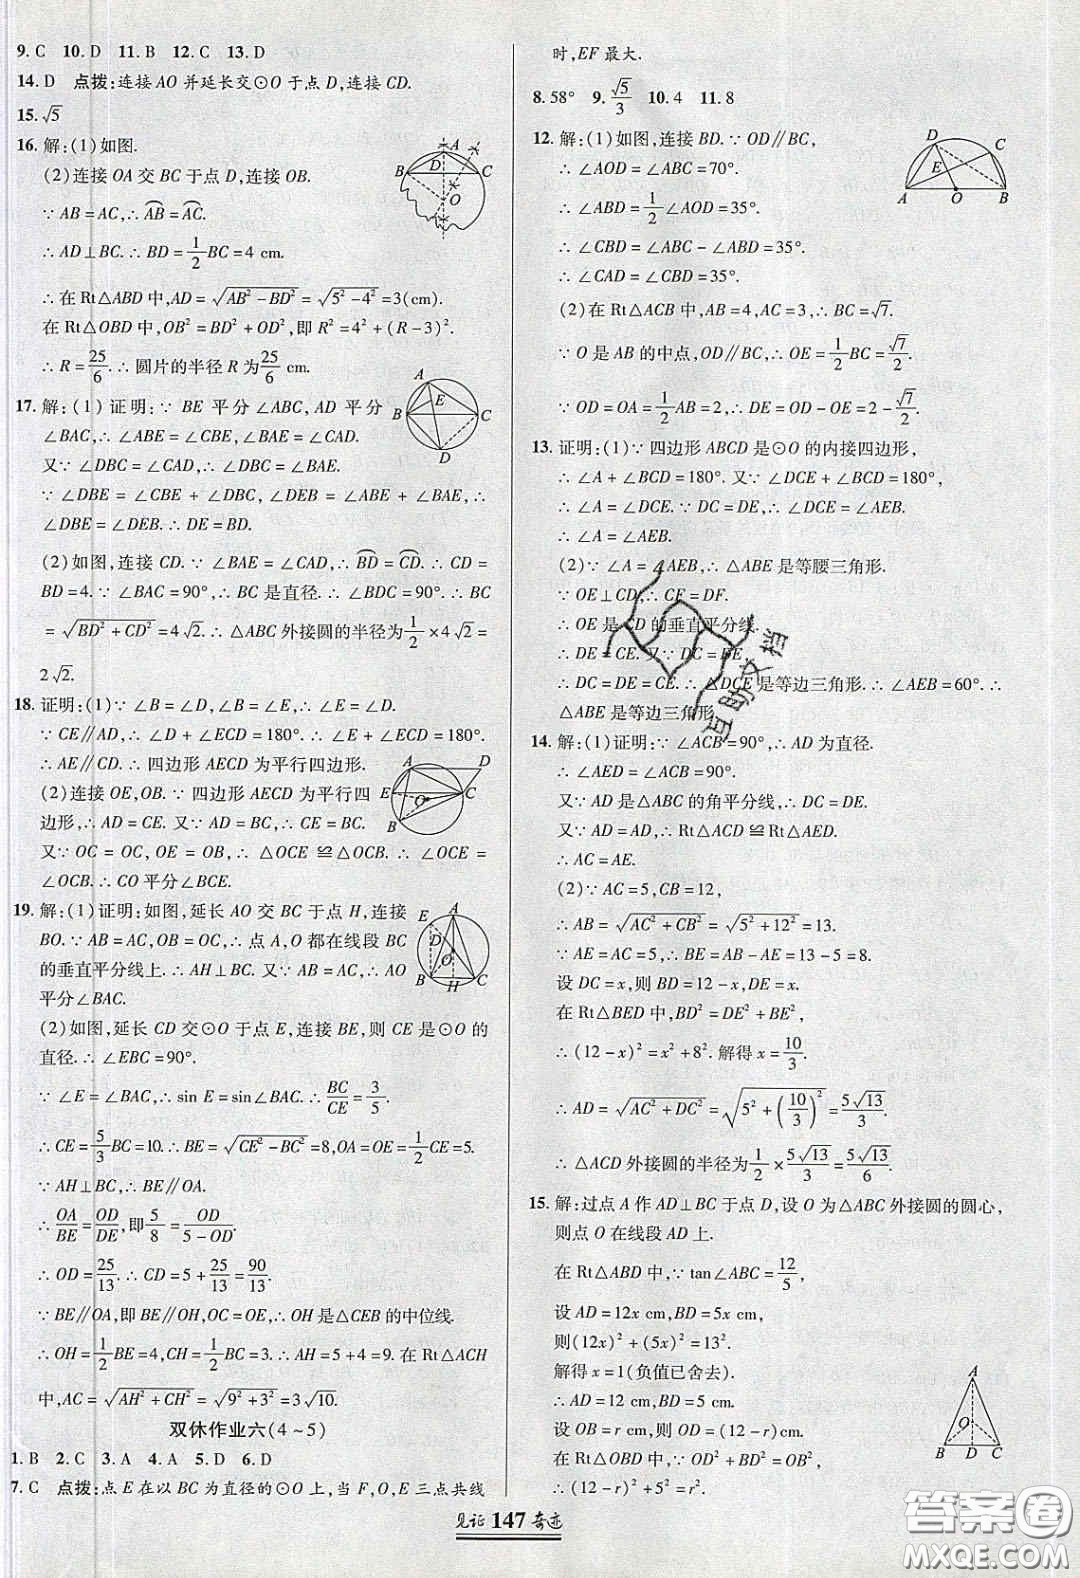 9. C 10. D 11. B 12. C 13. D
14. D 点拨:连接 AO 并延长交⊙O 于点 D,连接 CD.
15. √5
16. 解:(1)如图.
(2)连接 OA 交 BC 于点 D,连接 OB.
∵ AB = AC,∴ A͡B = A͡C.
∴ AD⊥BC. ∴ BD = 1/2 BC = 4 cm.
∴ 在 Rt△ABD 中,AD = √(AB² − BD²) = √(5² − 4²) = 3(cm).
在 Rt△OBD 中,OB² = BD² + OD²,即 R² = 4² + (R − 3)².
∴ R = 25/6. ∴ 圆片的半径 R 为 25/6 cm.
17. 解:(1) 证明:∵ BE 平分 ∠ABC,AD 平分
∠BAC,∴ ∠ABE = ∠CBE,∠BAE = ∠CAD.
又∵ ∠DBC = ∠CAD,∴ ∠DBC = ∠BAE.
∵ ∠DBE = ∠CBE + ∠DBC, ∠DEB = ∠ABE + ∠BAE,∴
∠DBE = ∠DEB. ∴ DE = BD.
(2)如图,连接 CD. ∵ ∠BAE = ∠CAD,∴ B͡D = C͡D. ∴ CD =
BD = 4. ∵ ∠BAC = 90°,∴ BC 是直径. ∴ ∠BDC = 90°. ∴ BC
= √(BD² + CD²) = 4√2. ∴ △ABC 外接圆的半径为 1/2 × 4√2 =
2√2.
18. 证明:(1)∵ ∠B = ∠D,∠B = ∠E,∴ ∠D = ∠E.
∵ CE∥AD,∴ ∠D + ∠ECD = 180°. ∴ ∠E + ∠ECD = 180°.
∴ AE∥CD. ∴ 四边形 AECD 为平行四边形.
(2)连接 OE,OB. ∵ 四边形 AECD 为平行四
边形,∴ AD = CE. 又∵ AD = BC,∴ CE = CB.
又∵ OC = OC, OE = OB,∴ △OCE ≌△OCB. ∴ ∠OCE =
∠OCB. ∴ CO 平分∠BCE.
19. 解:(1)证明:如图,延长 AO 交 BC 于点 H,连接
BO. ∵ AB = AC,OB = OC,∴ 点 A,O 都在线段 BC
的垂直平分线上. ∴ AH⊥BC. 又∵ AB = AC,∴ AO
平分∠BAC.
(2)如图,延长 CD 交⊙O 于点 E,连接 BE,则 CE 是⊙O 的
直径. ∴ ∠EBC = 90°.
∵ ∠E = ∠BAC,∴ sin E = sin∠BAC. ∴ BC/CE = 3/5.
∴ CE = 5/3 BC = 10. ∴ BE = √(CE² − BC²) = 8,OA = OE = 1/2 CE = 5.
∵ AH⊥BC,∴ BE∥OA.
∴ OA/BE = OD/DE,即 5/8 = OD/(5 − OD).
∴ OD = 25/13. ∴ CD = 5 + 25/13 = 90/13.
∵ BE∥OA,即 BE∥OH,OC = OE,∴ OH 是△CEB 的中位线.
∴ OH = 1/2 BE = 4,CH = 1/2 BC = 3. ∴ AH = 5 + 4 = 9. 在 Rt△ACH
中,AC = √(AH² + CH²) = √(9² + 3²) = 3√10.
双休作业六(4 ~ 5)
1. B 2. C 3. A 4. A 5. D 6. D
7. C 点拨:点 E 在以 BC 为直径的⊙O 上,当 F,O,E 三点共线
时,EF 最大.
8. 58° 9. √5/3 10. 4 11. 8
12. 解:(1)如图,连接 BD. ∵ OD∥BC,
∴ ∠AOD = ∠ABC = 70°.
∴ ∠ABD = 1/2 ∠AOD = 35°.
∴ ∠CBD = ∠ABC − ∠ABD = 35°.
∴ ∠CAD = ∠CBD = 35°.
(2)在 Rt△ACB 中,AB = 4,AC = 3,∴ BC = √7.
∵ O 是 AB 的中点,OD∥BC,∴ OE = 1/2 BC = √7/2.
∵ OD = OA = 1/2 AB = 2,∴ DE = OD − OE = 2 − √7/2.
13. 证明:(1)∵ 四边形 ABCD 是⊙O 的内接四边形,
∴ ∠A + ∠BCD = 180°. 又∵ ∠DCE + ∠BCD = 180°,
∴ ∠A = ∠DCE. ∵ DC = DE,∴ ∠DCE = ∠AEB.
∴ ∠A = ∠AEB.
(2)∵ ∠A = ∠AEB,∴ △ABE 是等腰三角形.
∵ OE⊥CD,∴ CF = DF.
∴ OE 是 CD 的垂直平分线.
∴ DE = CE. 又∵ DC = DE,
∴ DC = DE = CE. ∴ △DCE 是等边三角形. ∴ ∠AEB = 60°. ∴
△ABE 是等边三角形.
14. 解:(1)证明:∵ ∠ACB = 90°,∴ AD 为直径.
∴ ∠AED = ∠ACB = 90°.
又∵ AD 是△ABC 的角平分线,∴ DC = DE.
又∵ AD = AD,∴ Rt△ACD ≌ Rt△AED.
∴ AC = AE.
(2)∵ AC = 5,CB = 12,
∴ AB = √(AC² + CB²) = √(5² + 12²) = 13.
∵ AE = AC = 5,∴ BE = AB − AE = 13 − 5 = 8.
设 DC = x,则 BD = 12 − x,
在 Rt△BED 中,BD² = DE² + BE²,
∴ (12 − x)² = x² + 8². 解得 x = 10/3.
∴ AD = √(AC² + DC²) = √(5² + (10/3)²) = 5√13/3.
∴ △ACD 外接圆的半径为 1/2 × 5√13/3 = 5√13/6.
15. 解:过点 A 作 AD⊥BC 于点 D,设 O 为△ABC 外接圆的圆心,
则点 O 在线段 AD 上.
在 Rt△ABD 中,∵ tan∠ABC = 12/5,
设 AD = 12x cm,BD = 5x cm,
则(12x)² + (5x)² = 13².
解得 x = 1(负值已舍去).
∴ AD = 12 cm,BD = 5 cm.
设 OB = r cm,则 OD = (12 − r) cm.
在 Rt△OBD 中,∵ OD² + BD² = OB²,
∴ (12 − r)² + 5² = r².
见证 147 奇迹
互助文档
答案圈
MXQE.COM